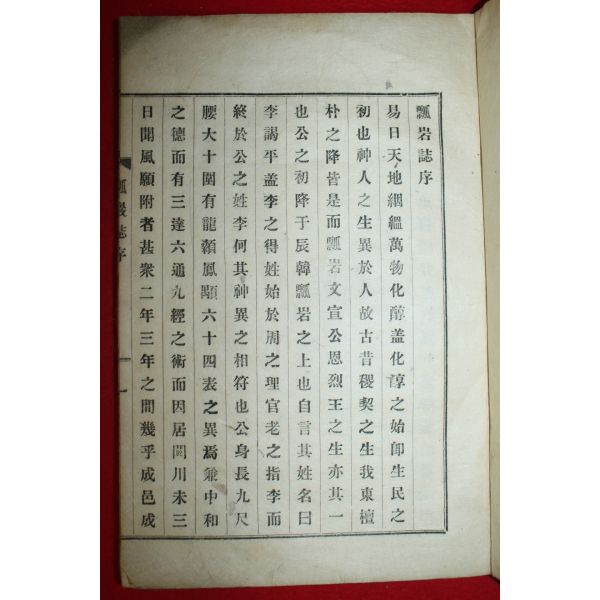 瓢岩誌序
易曰天地絪縕萬物化醇盖化諄之始卽生民之
初也神人之生異於人故古昔稷契之生我東檀
朴之降皆是而瓢岩文宣公恩烈王之生亦其一
也公之初降于辰韓瓢岩之上也自言其姓名曰
李謁平盖李之得姓始於周之理官老之指李而
終於公之姓李何其神異之相符也公身長九尺
腰大十圍有龍顔鳳顯六十四表之異焉兼中和
之德而有三達六通九經之術而因居閼川未三
日聞風願附者甚衆二年三年之間幾乎成邑成
瓢巖誌序
一